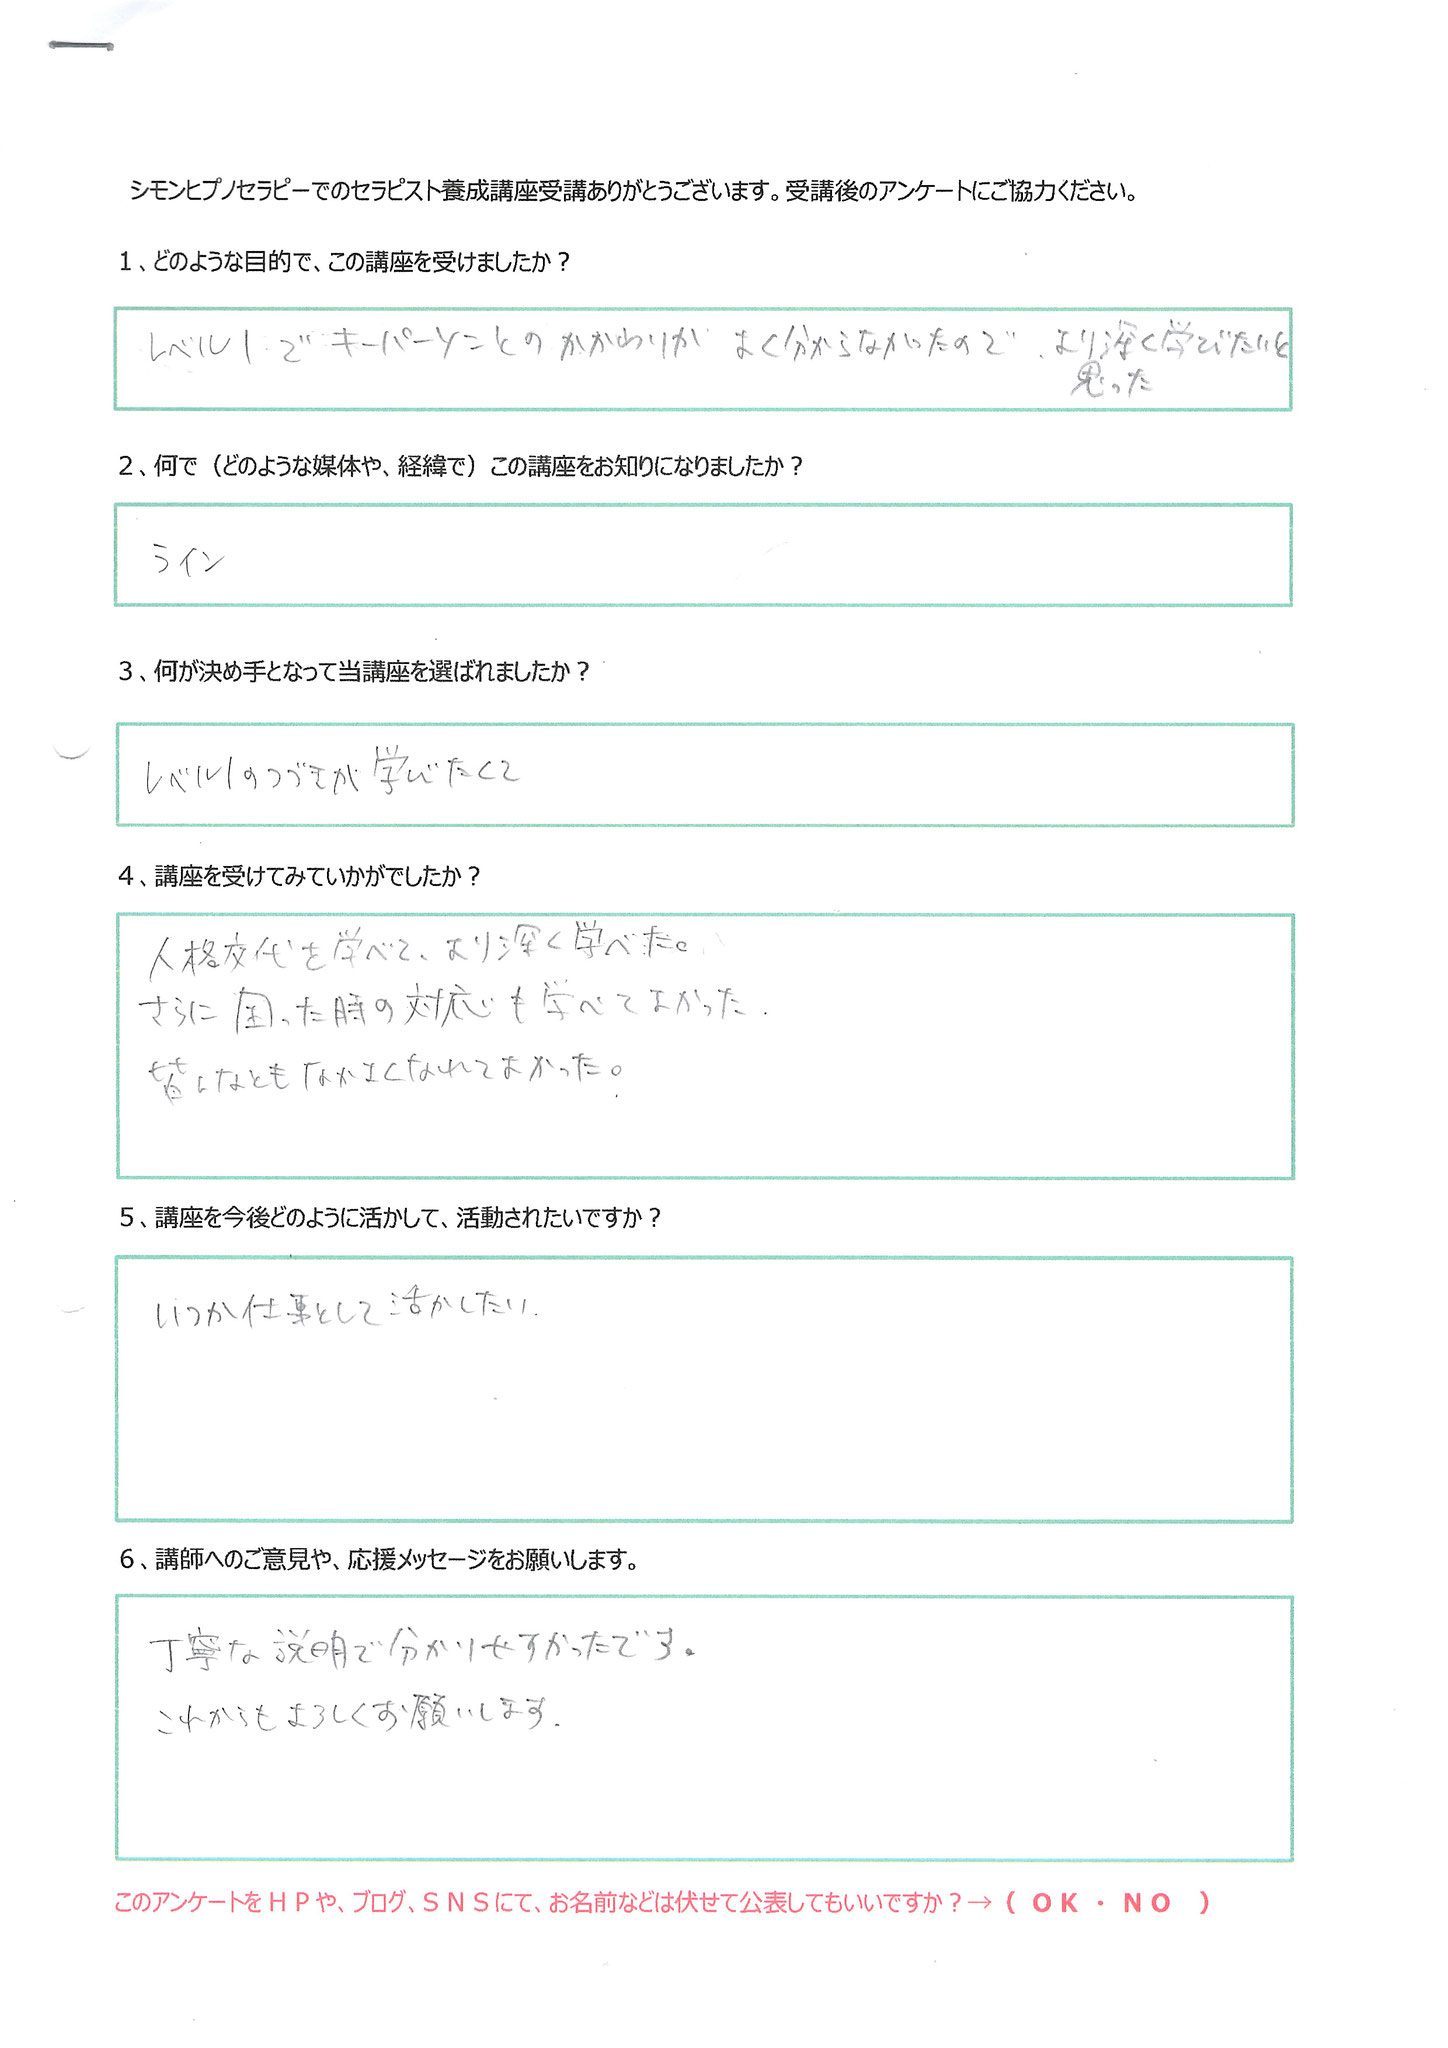 シモンヒプノセラピーでのセラピスト養成講座受講ありがとうございます。受講後のアンケートにご協力ください。
１、どのような目的で、この講座を受けましたか？
レベル１でキーパーソンとのかかわりがよく分からなかったので、より深く学びたいと
思った
２、何で（どのような媒体や、経緯で）この講座をお知りになりましたか？
ライン
３、何が決め手となって当講座を選ばれましたか？
レベル１のつづきが学びたくて
４、講座を受けてみていかがでしたか？
人格交代を学べて、より深く学べた。
さらに困った時の対応も学べてよかった.
皆んなともなかよくなれてよかった。
５、講座を今後どのように活かして、活動されたいですか？
いつか仕事として活かしたい.
６、講師へのご意見や、応援メッセージをお願いします。
丁寧な説明で分かりやすかったです。
これからもよろしくお願いします.
このアンケートをＨＰや、ブログ、ＳＮＳにて、お名前などは伏せて公表してもいいですか？→（ ＯＫ ・ ＮＯ ）